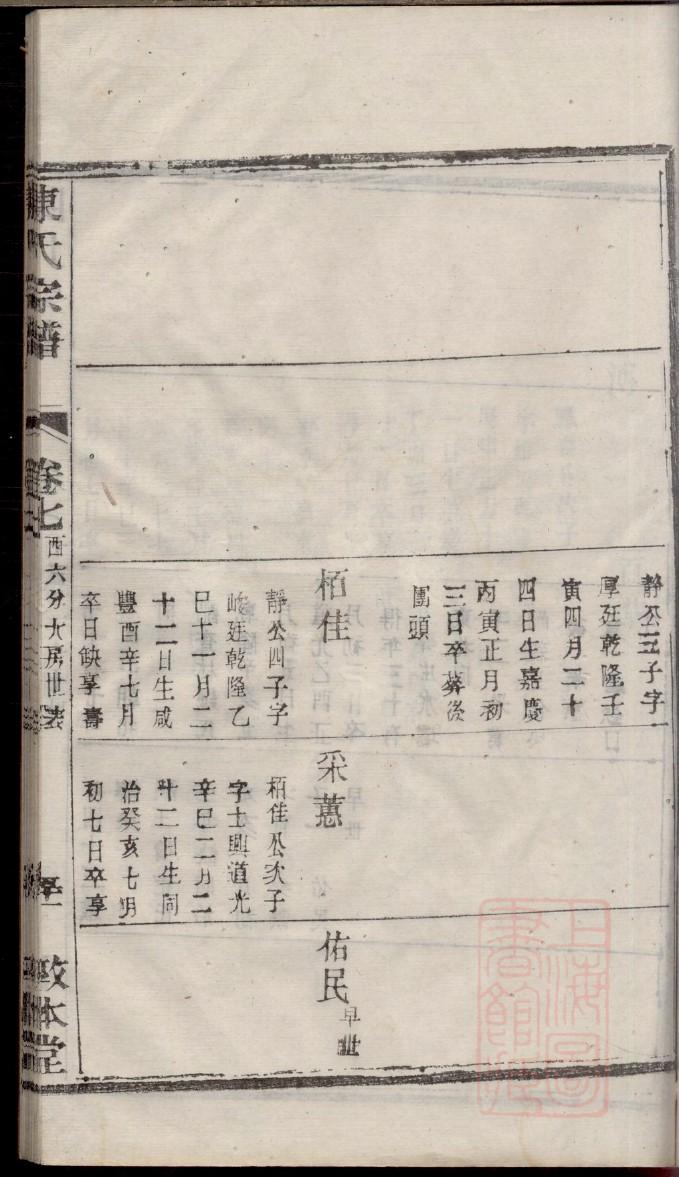 靜公三子字
厚廷乾隆壬
寅四月二十
四日生嘉慶
丙寅正月初
三日卒葬後
團頭
栢佳
靜公四子字
峻廷乾隆乙
巳十一月二
十二日生咸
豐酉辛七月
卒日缺享壽
采蕙
栢佳公次子
字士興道光
辛巳二月二
十二日生同
治癸亥七月
初七日卒享
佑民
早世
陳氏宗譜
卷七
西六分大房世表
敦本堂
上海圖書館藏